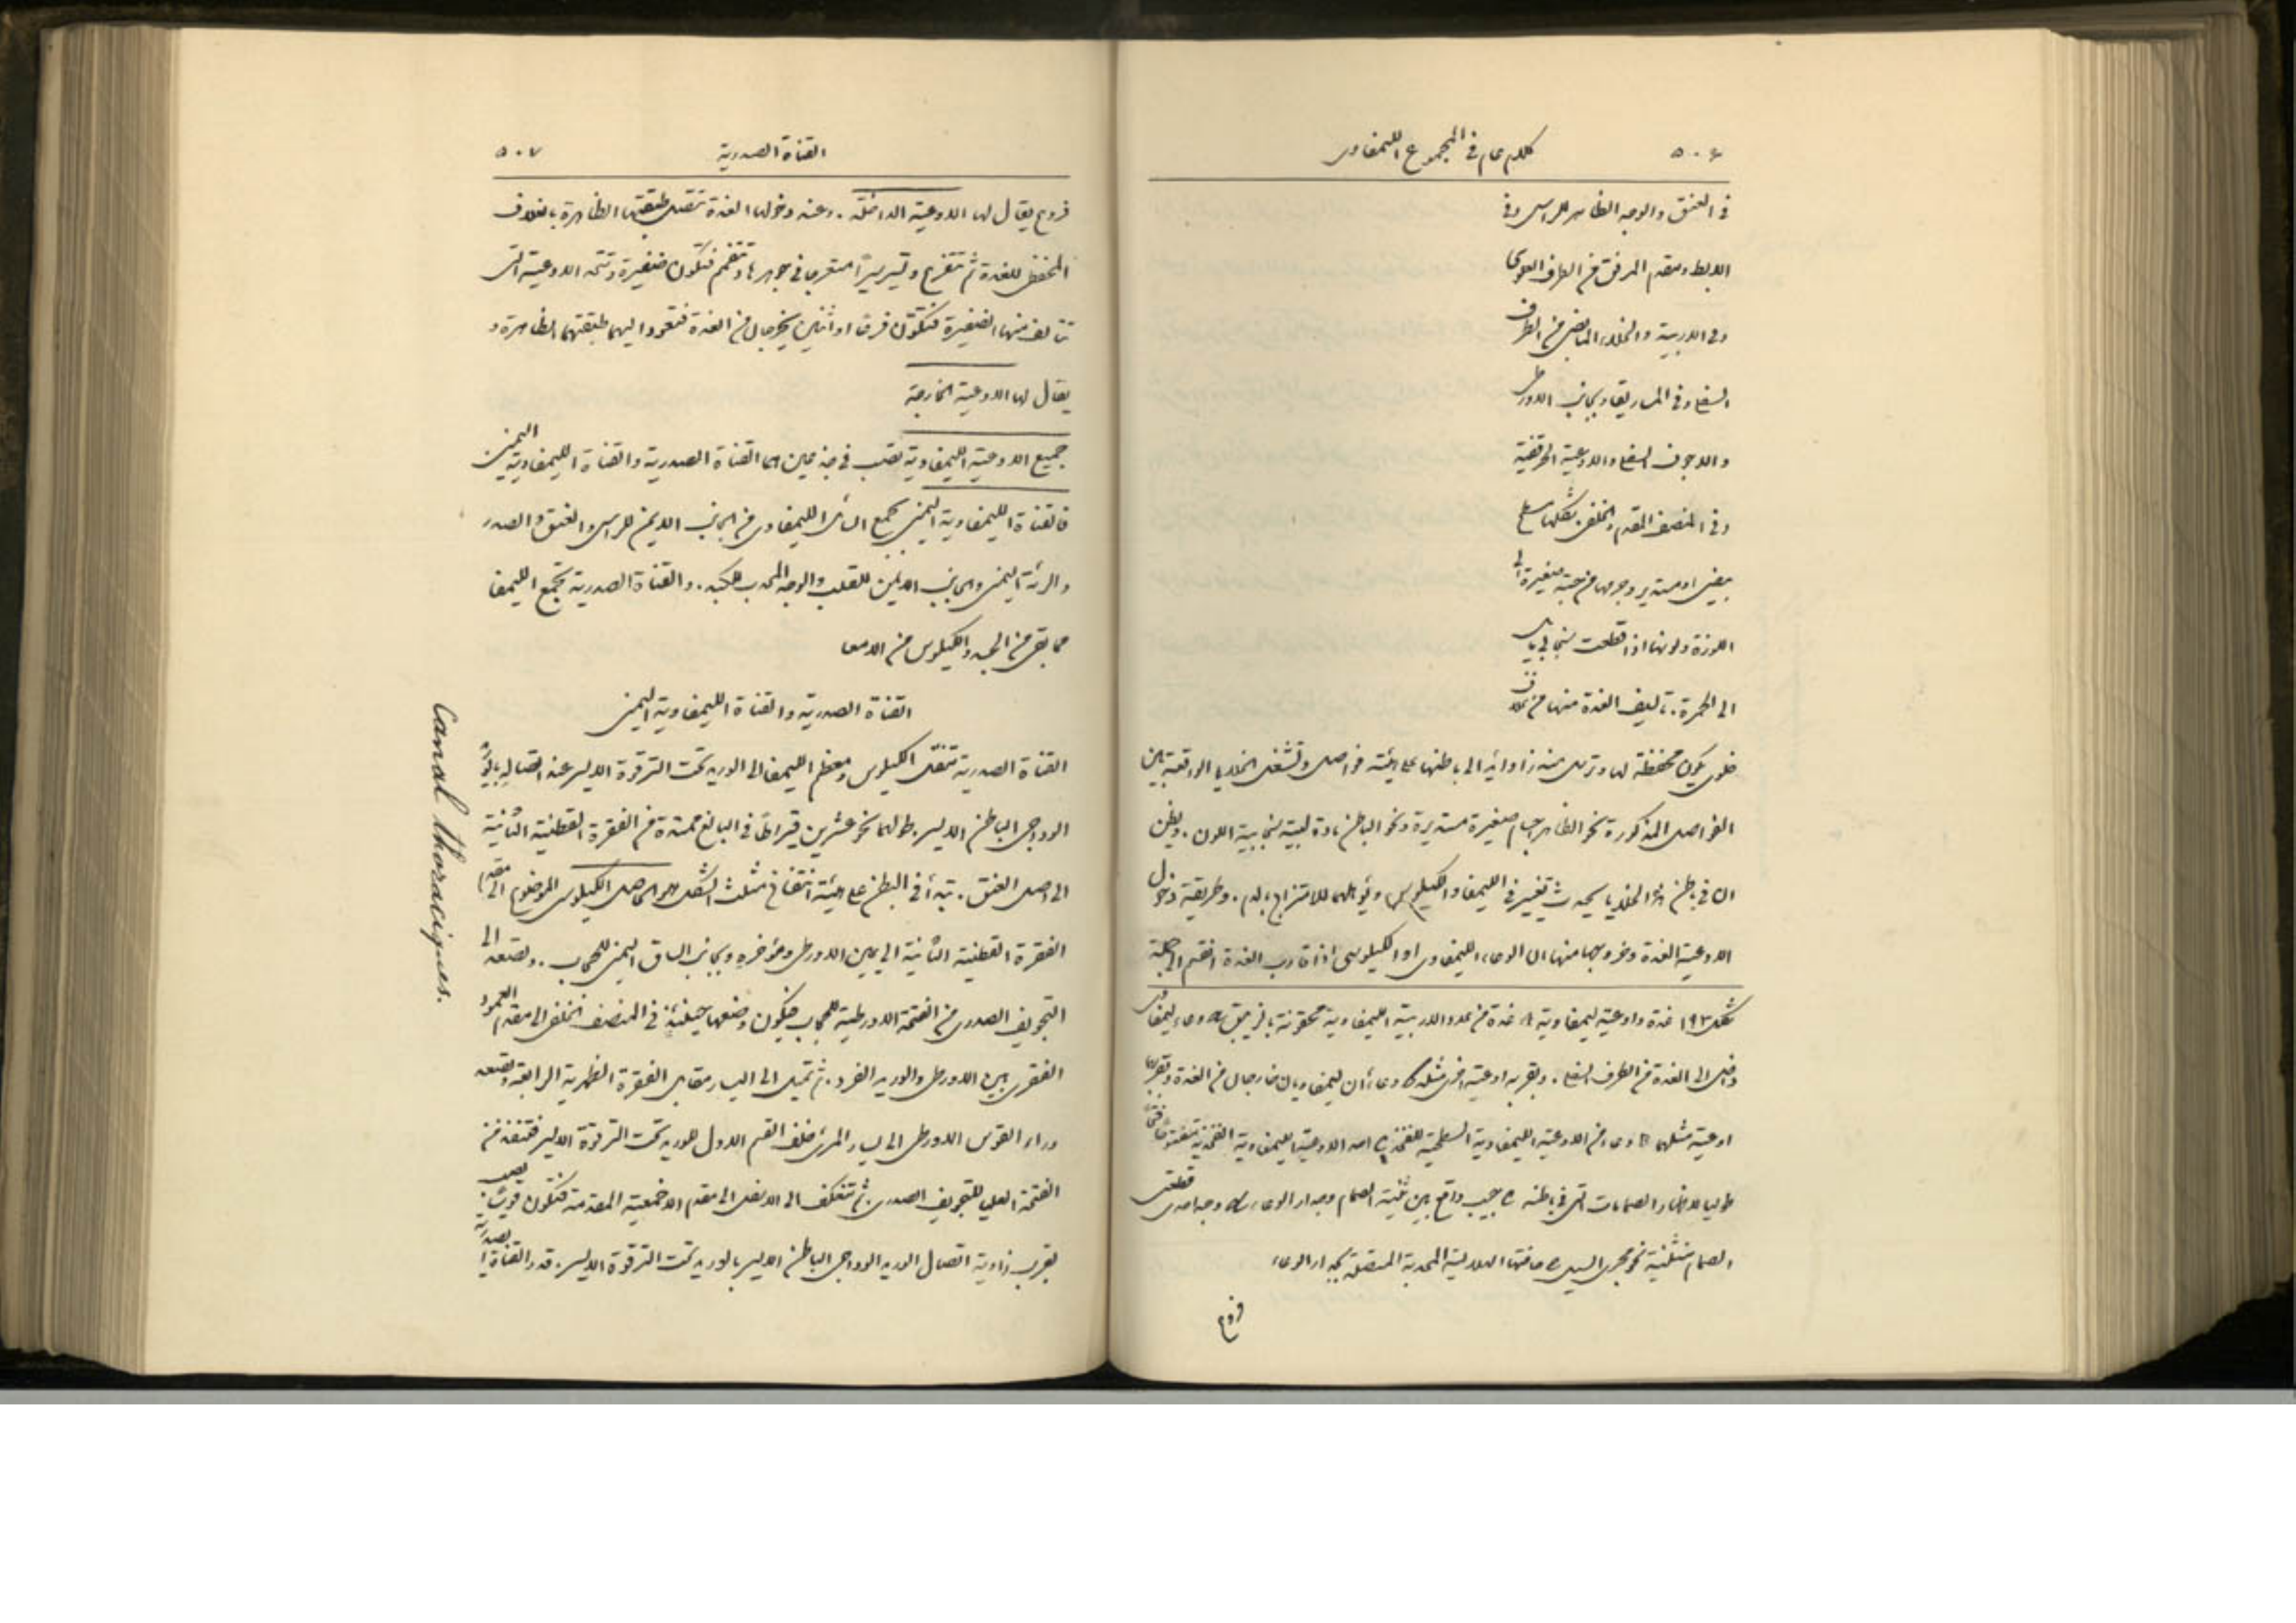 ٥٠٦
كلام عام في المجموع الليمفاوي
في العنق والوجه الظاهر للراس وفي
الابط ومقدم المرفق من الطرف العلوي
وفي الاربية والخلاء المابضي من الطرف
السفلي وفي المساريقا وبجانب الاورطي
والاجوف السفلي والاوعية الحرقفية
وفي المنصف المقدم والخلفي. شكلها
بيضي او مستدير وجرمها من حبة صغيرة الى
اللوزة ولونها اذا قطعت سنجابي
الى الحمرة. تاليف الغدة منها من غلاف
خلوي يكون محفظة لها وترسل منه زوائد الى باطنها على هيئة فواصل وتشغل الخلايا الواقعة بين
الفواصل المذكورة نحو الظاهر اجسام صغيرة مستديرة ونحو الباطن مادة لبية سنجابية اللون. ويظن
ان في باطن هذه الخلايا يحدث تغيير في الليمفا والكيلوس ويؤهلهما للامتزاج بالدم. وطريقة دخول
الاوعية الغدة وخروجها منها ان الوعاء الليمفاوي او الكيلوسي اذا قارب الغدة انقسم الى جملة
شكل ١٩٣ غدة واوعية ليمفاوية A غدة من غدد الاربية الليمفاوية محقونة بالزيبق a وعاء ليمفاوي
داخل الى الغدة من الطرف السفلي. وبقربه اوعية اخرى مثله وعاءان ليمفاويان خارجان من الغدة وبقربهما
اوعية مثلهما B وعاء من الاوعية الليمفاوية السطحية للفخذ احد الاوعية الليمفاوية الفخذية
طوليا لاظهار الصمامات التي في باطنه c جيب واقع بين ثنية الصمام وجدار الوعاء وجه احدى قطعتي
الصمام منثنية نحو مجرى السيل e حافتها الهلالية المحدبة المتصلة بجدار الوعاء
فروع
القناة الصدرية
٥٠٧
فروع يقال لها الاوعية الداخلة. وعند دخولها الغدة تتصل طبقتها الظاهرة بالغلاف
المحفظي للغدة ثم تتفرع وتسير سيرا متعرجا في جوهرها وتتفمم فتكون ضفيرة وتتحد الاوعية التي
تتالف منها الضفيرة فتتكون فرعا او اثنين يخرجان من الغدة فتعود اليهما طبقتهما الظاهرة و
يقال لها الاوعية الخارجة
جميع الاوعية الليمفاوية تصب في جذعين هما القناة الصدرية والقناة الليمفاوية اليمنى
فالقناة الليمفاوية اليمنى تجمع السائل الليمفاوي من الجانب الايمن للراس والعنق والصدر
والرئة اليمنى والجانب الايمن للقلب والوجه المحدب للكبد. والقناة الصدرية تجمع الليمفا
مما بقي من الجسد والكيلوس من الامعا
القناة الصدرية والقناة الليمفاوية اليمنى
القناة الصدرية تنقل الكيلوس ومعظم الليمفا الى الوريد تحت الترقوة الايسر عند اتصاله بالوريد
الوداجي الباطن الايسر. طولها نحو عشرين قيراطا في البالغ ممتدة من الفقرة القطنية الثانية
الى اصل العنق. تبدأ في البطن على هيئة انتفاخ مثلث الشكل هو الحاصل الكيلوسي الموضوع الى مقدم
الفقرة القطنية الثانية الى يمين الاورطي ومؤخره وبجانب الساق اليمنى للحجاب. وتصعد الى
التجويف الصدري من الفتحة الاورطية للحجاب فيكون وضعها حينئذ في المنصف الخلفي الى مقدم العمود
الفقري بين الاورطي والوريد الفرد. ثم تميل الى اليسار مقابل الفقرة الظهرية الرابعة وتصعد
وراء القوس الاورطي الى يسار المرئ خلف القسم الاول للوريد تحت الترقوة الايسر فتنفذ من
الفتحة العليا للتجويف الصدري. ثم تنعكف الى الاسفل الى مقدم الاخمعية المقدمة فتكون قوسا يصب
بقرب زاوية اتصال الوريد الوداجي الباطن الايسر بالوريد تحت الترقوة الايسر. قدر القناة الصدرية
Canal thoraciques.